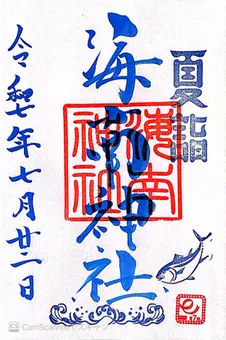 夏詣
海南神社
海南神社
令和七年七月廿二日
CamScannerでスキャン